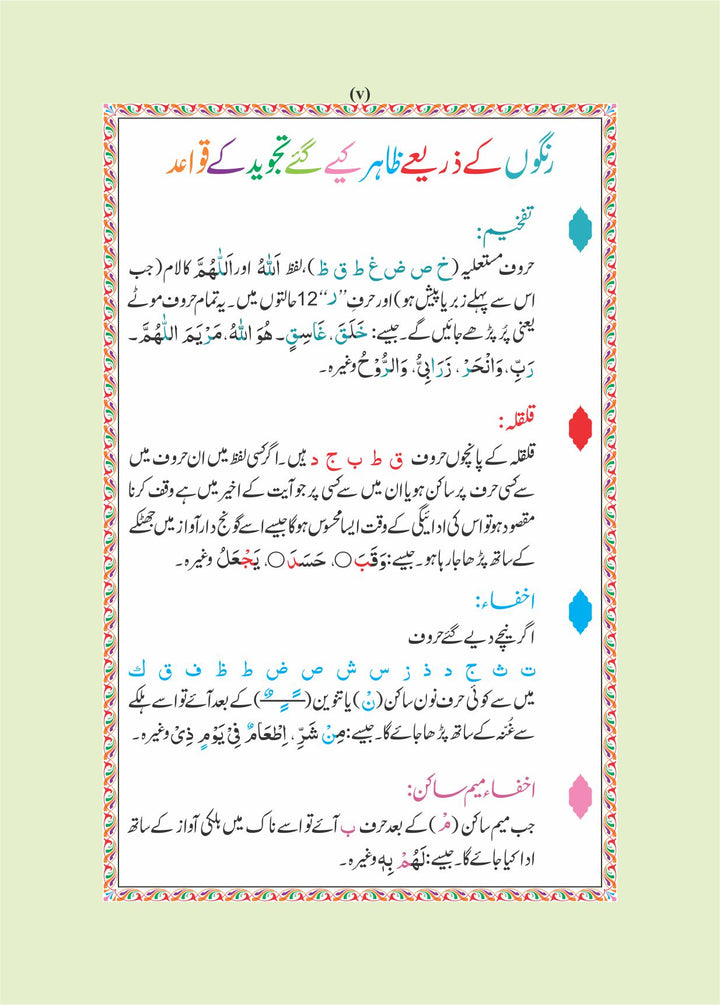 (v)
رنگوں کے ذریعے ظاہر کیے گئے تجوید کے قواعد
تفخیم:
حروف مستعلیہ (خ ص ض غ ط ق ظ)، لفظ اَللّٰهُ اور اَللّٰهُمَّ کا لام (جب
اس سے پہلے زبر یا پیش ہو) اور حرفِ ’’ر‘‘ 12 حالتوں میں۔ یہ تمام حروف موٹے
یعنی پُر پڑھے جائیں گے۔ جیسے: خَلَقَ، غَاسِقٍ۔ هُوَ اللّٰهُ، مَرْيَمَ اللّٰهُمَّ۔
رَبِّ، وَانْحَرْ، زَرَابِيُّ، وَالرُّوْحُ وغیرہ۔
قلقلہ:
قلقلہ کے پانچوں حروف ق ط ب ج د ہیں۔ اگر کسی لفظ میں ان حروف میں
سے کسی حرف پر ساکن ہو یا ان میں سے کسی پر جو آیت کے اخیر میں ہے وقف کرنا
مقصود ہو تو اس کی ادائیگی کے وقت ایسا محسوس ہوگا جیسے اسے گونج دار آواز میں جھٹکے
کے ساتھ پڑھا جا رہا ہو۔ جیسے: وَقَبَ○، حَسَدَ○، يَجْعَلُ وغیرہ۔
اخفاء:
اگر نیچے دیے گئے حروف
ت ث ج د ذ ز س ش ص ض ط ظ ف ق ك
میں سے کوئی حرف نون ساکن (نْ) یا تنوین (ـًـٍـٌ) کے بعد آئے تو اسے ہلکے
سے غُنّہ کے ساتھ پڑھا جائے گا۔ جیسے: مِنْ شَرِّ، اِطْعَامٌ فِيْ يَوْمٍ ذِيْ وغیرہ۔
اخفاء میم ساکن:
جب میم ساکن (مْ) کے بعد حرف ب آئے تو اسے ناک میں ہلکی آواز کے ساتھ
ادا کیا جائے گا۔ جیسے: لَهُمْ بِهٖ وغیرہ۔